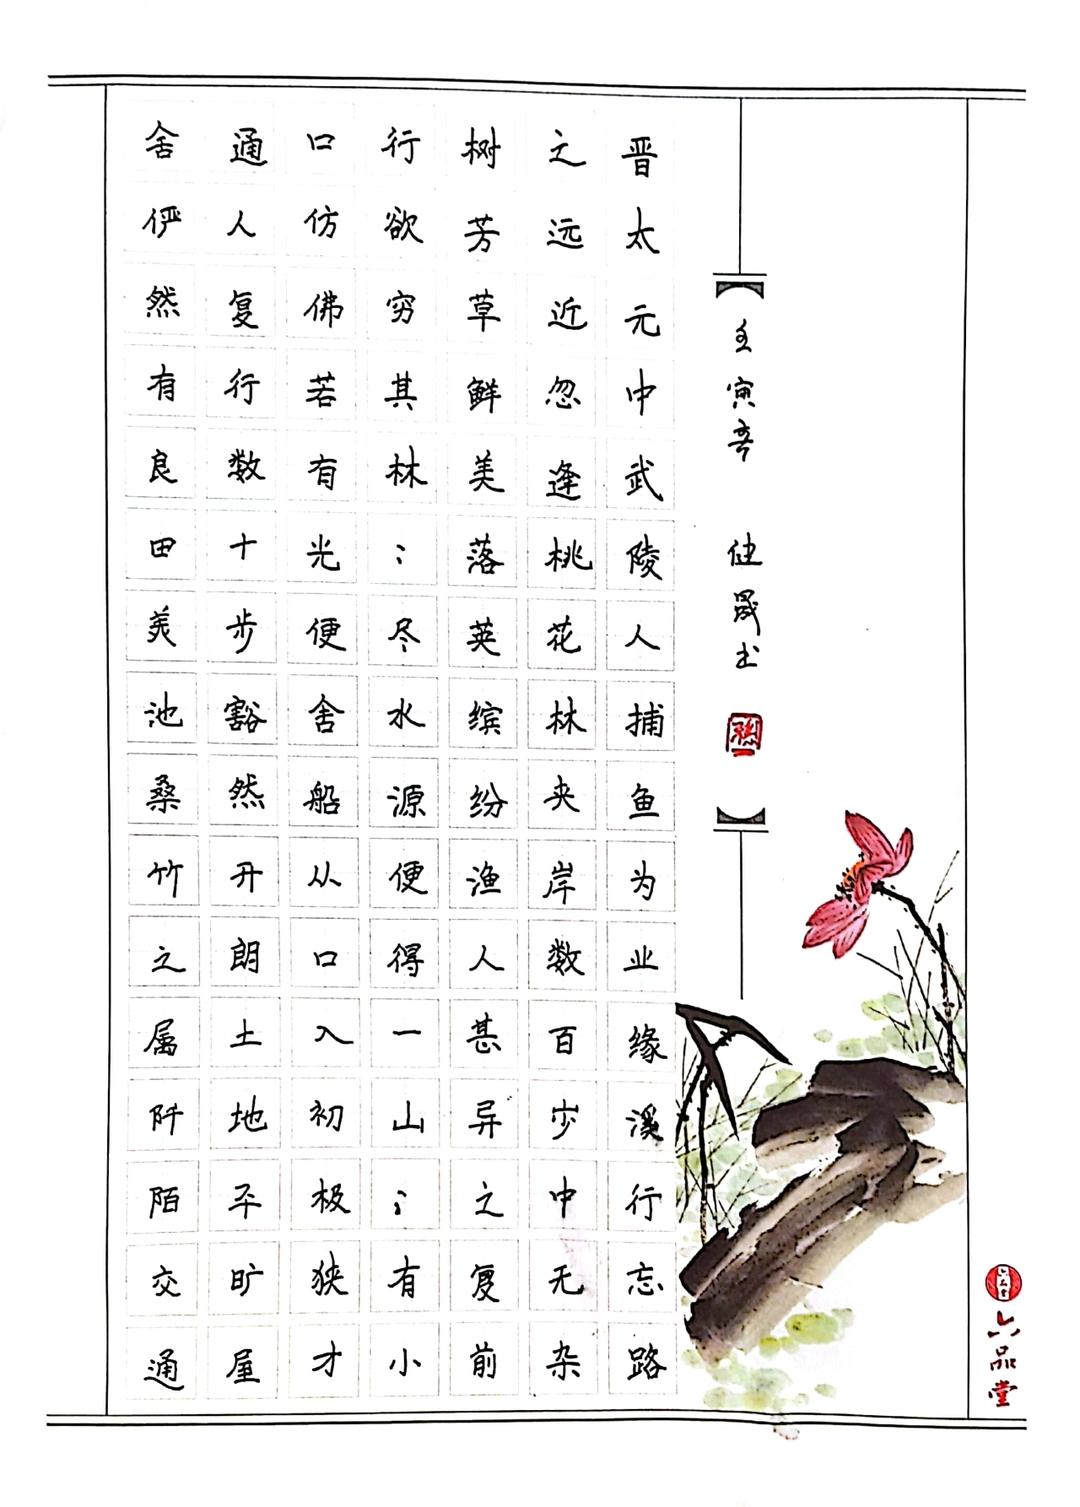 晋太元中武陵人捕鱼为业缘溪行忘路
之远近忽逢桃花林夹岸数百步中无杂
树芳草鲜美落英缤纷渔人甚异之复前
行欲穷其林；尽水源便得一山；有小
口仿佛若有光便舍船从口入初极狭才
通人复行数十步豁然开朗土地平旷屋
舍俨然有良田美池桑竹之属阡陌交通
壬寅春 健晟书
六品堂